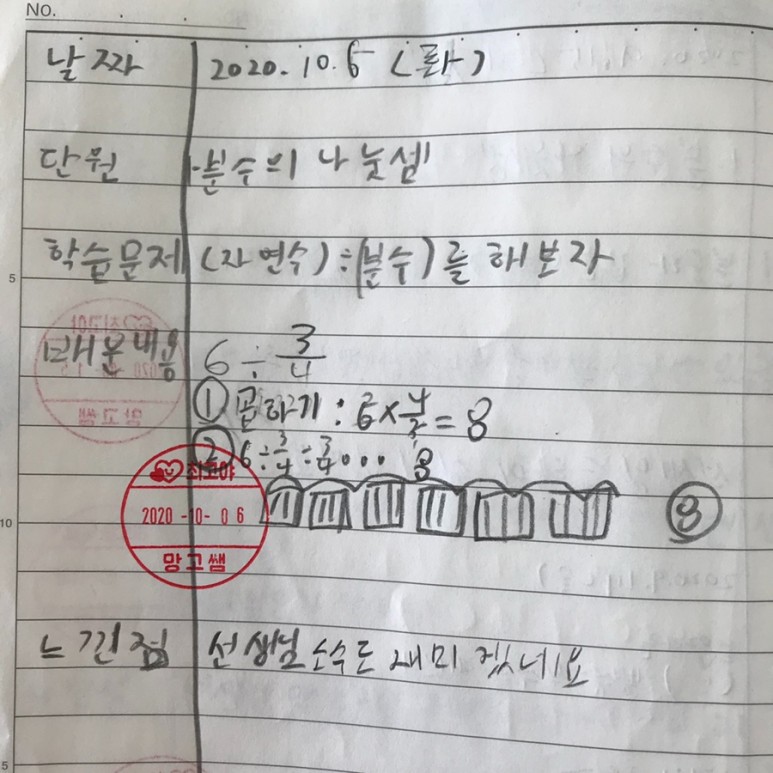 No.
날짜 2020.10.6 (화)
단원 분수의 나눗셈
학습문제 (자연수)÷(분수)를 해보자
배운내용 6 ÷ 3/4
① 곱하기 : 6×4/3 = 8
② 6÷3/4 ÷ 3/4 ... 8
최고야
2020-10-06
망고쌤
8
느낀점 선생님 소수도 재미 겠네요
5
10
5